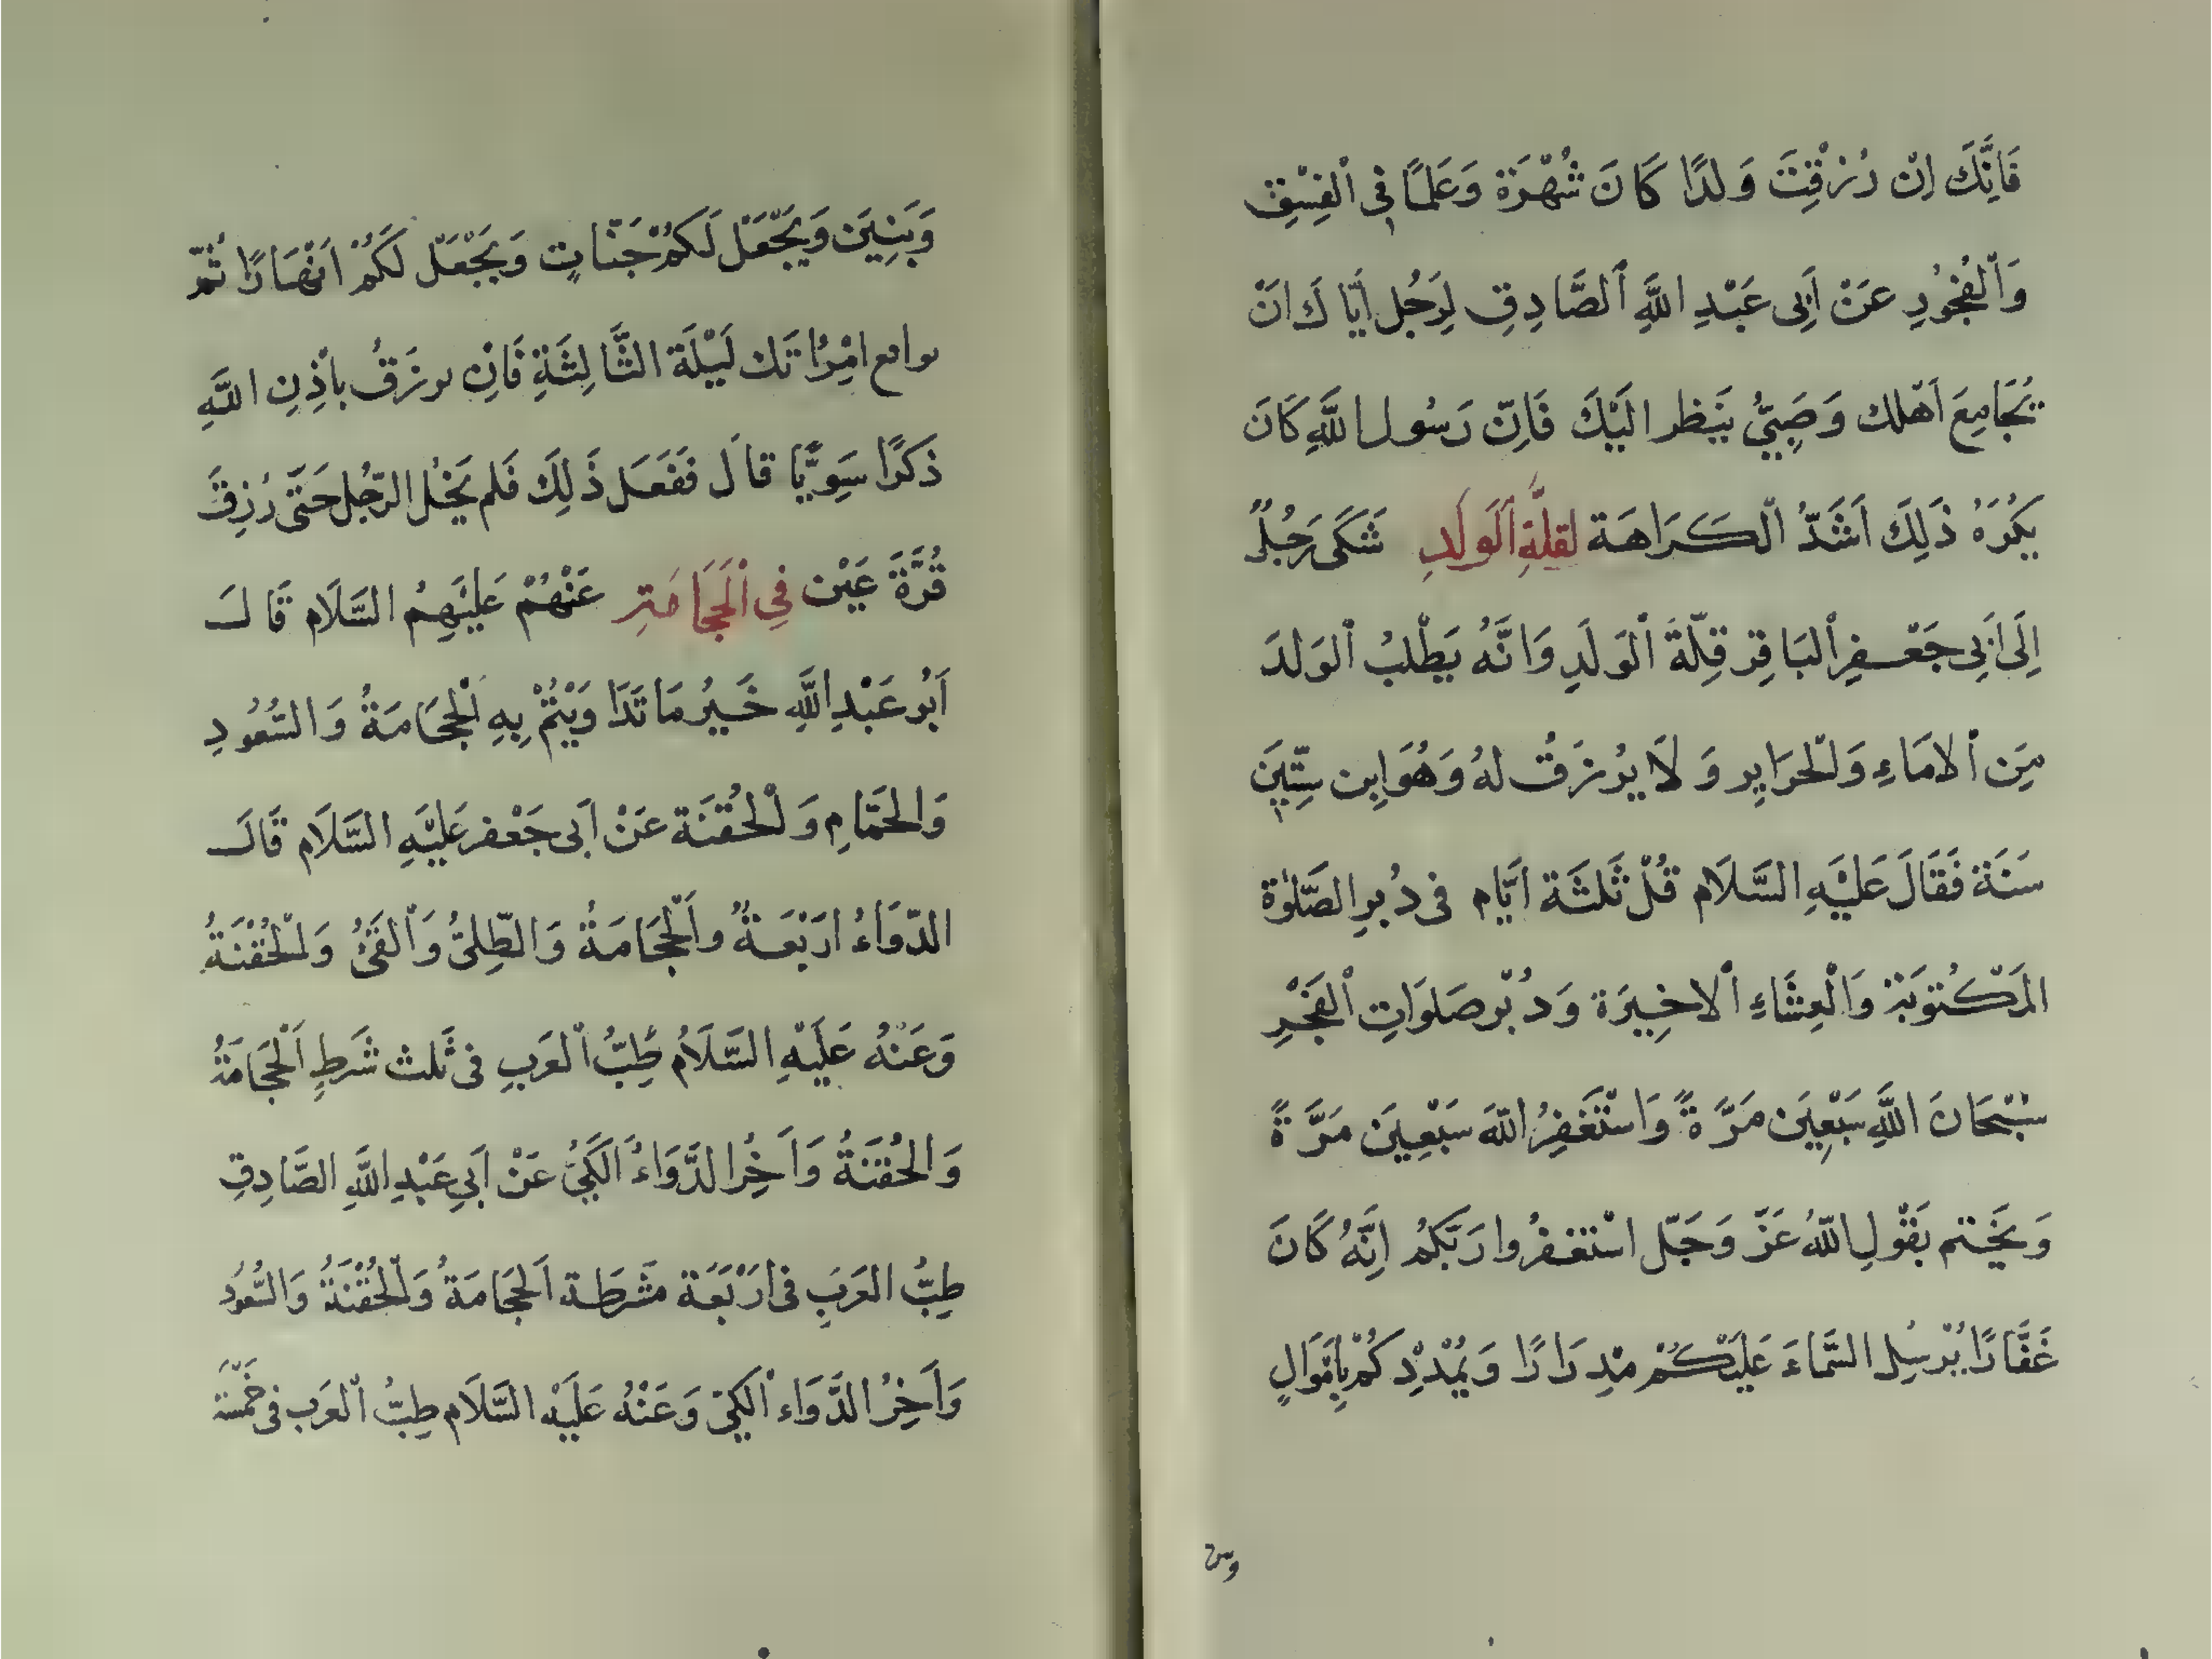 فَاِنَّكَ اِنْ رُزِقْتَ وَلدًا كَانَ شُهْرَة وَعَلَمًا فِي اْلفِسْقِ
وَاْلفُجُورِ عَنْ اَبِى عَبْدِ اللَّهِ اْلصَّادِقِ لِرَجُل اَيّا كَ انْ
يُجَامِعَ اَهْلك وَصَبِيٌّ يَنظر الَيْكَ فَاِنّ رَسُول اللَّهِ كَانَ
يَكْرَهُ ذَلِكَ اَشَدّ اْلكَرَاهَة لقلَّةِ اَلوَلَدِ شَكَى رَجُلاً
اِلَى اَبِي جَعْفِر اْلبَاقِر قِلّةَ اْلوَلَدِ وَانَّهُ يَطْلُبُ اْلوَلدَ
مِنَ اْلامَاءِ وَلْحرَايِر وَلَا يرْزَقُ لهُ وَهُوَ اِبن سِتّينَ
سَنَة فَقَالَ عَلَيْهِ السَّلَام قُلْ ثَلثَة اَيّام فى دُبرِ الصَّلوٰة
المَكْتوبَة وَالْعِشَاءِ اْلاخِيرَة وَدُبْر صَلوَاتِ اْلفَجْرِ
سُبْحَانَ اللَّهِ سَبْعِينَ مَرَّةً وَاسْتَغفِرُ اللّهَ سَبْعِينَ مَرَّةً
وَيَخْتم بقَوْلِ اللّهُ عَزّ وَجَلّ اسْتغفرُوا رَبّكمُ اِنَّهُ كَانَ
غَفَّارًا يُرْسِل السَّمَاءَ عَليَكُمْ مدْرَارًا وَيُمْدِدْكُمْ بِاَمْوَالٍ
وبنـ
وَبَنِينَ وَيَجْعَلْ لَكمُ جَنّاتٍ وَيَجْعَلْ لَكمُ اَنْهَارًا ثُمّ
واقع امْرُاتَك لَيْلَة الثَّالِثَةِ فَاِنْ ىرزَقُ باْذِنِ اللَّهِ
ذَكَرًا سَوِيًّا قالَ فَفَعَل ذَلِكَ فَلم يَحُل الرّجُل حَتَّى رُزِقَ
قُرَّةَ عَيْن فِي اْلحَجَامَةِ عَنْهُمْ عَلَيْهِمُ السَّلَام قَالَ
اَبُو عَبْدِ اللَّهِ خَيرُ مَا تَدَاوَيْتُمْ بِهِ اْلحَجَامَةُ وَالسُّعُودِ
وَالحَمّامِ وَلْحُقنَة عَنْ اَبى جَعْفر عَليْهِ السَّلَام قَالَ
الدّوَاءُ اَرْبَعَةٌ واَلْحَجَامَةُ وَالطّلِىُّ وَاْلقَىُّ وَلْحُقْنَةُ
وَعَنْهُ عَلَيْهِ السَّلَام طِبُّ اْلعَرَبِ فى ثَلث شَرطِ اَلْحَجَامَةُ
وَالحُقنَةُ وَاَخِرُ الدَّوَاءُ اَلكَيُّ عَنْ اَبِي عَبْدِ اللَّهِ الصَّادِقِ
طِبُّ العَرَبِ فى اَرْبَعَة مَشرَطَة اَلحَجَامَةُ وَلْحُقْنَةُ وَالسُّعُودُ
وَاَخِرُ الدَّوَاء اْلكَيّ وَعَنْهُ عَلَيْه السَّلَام طِبُّ اْلعَرَب فى خَمْسَة